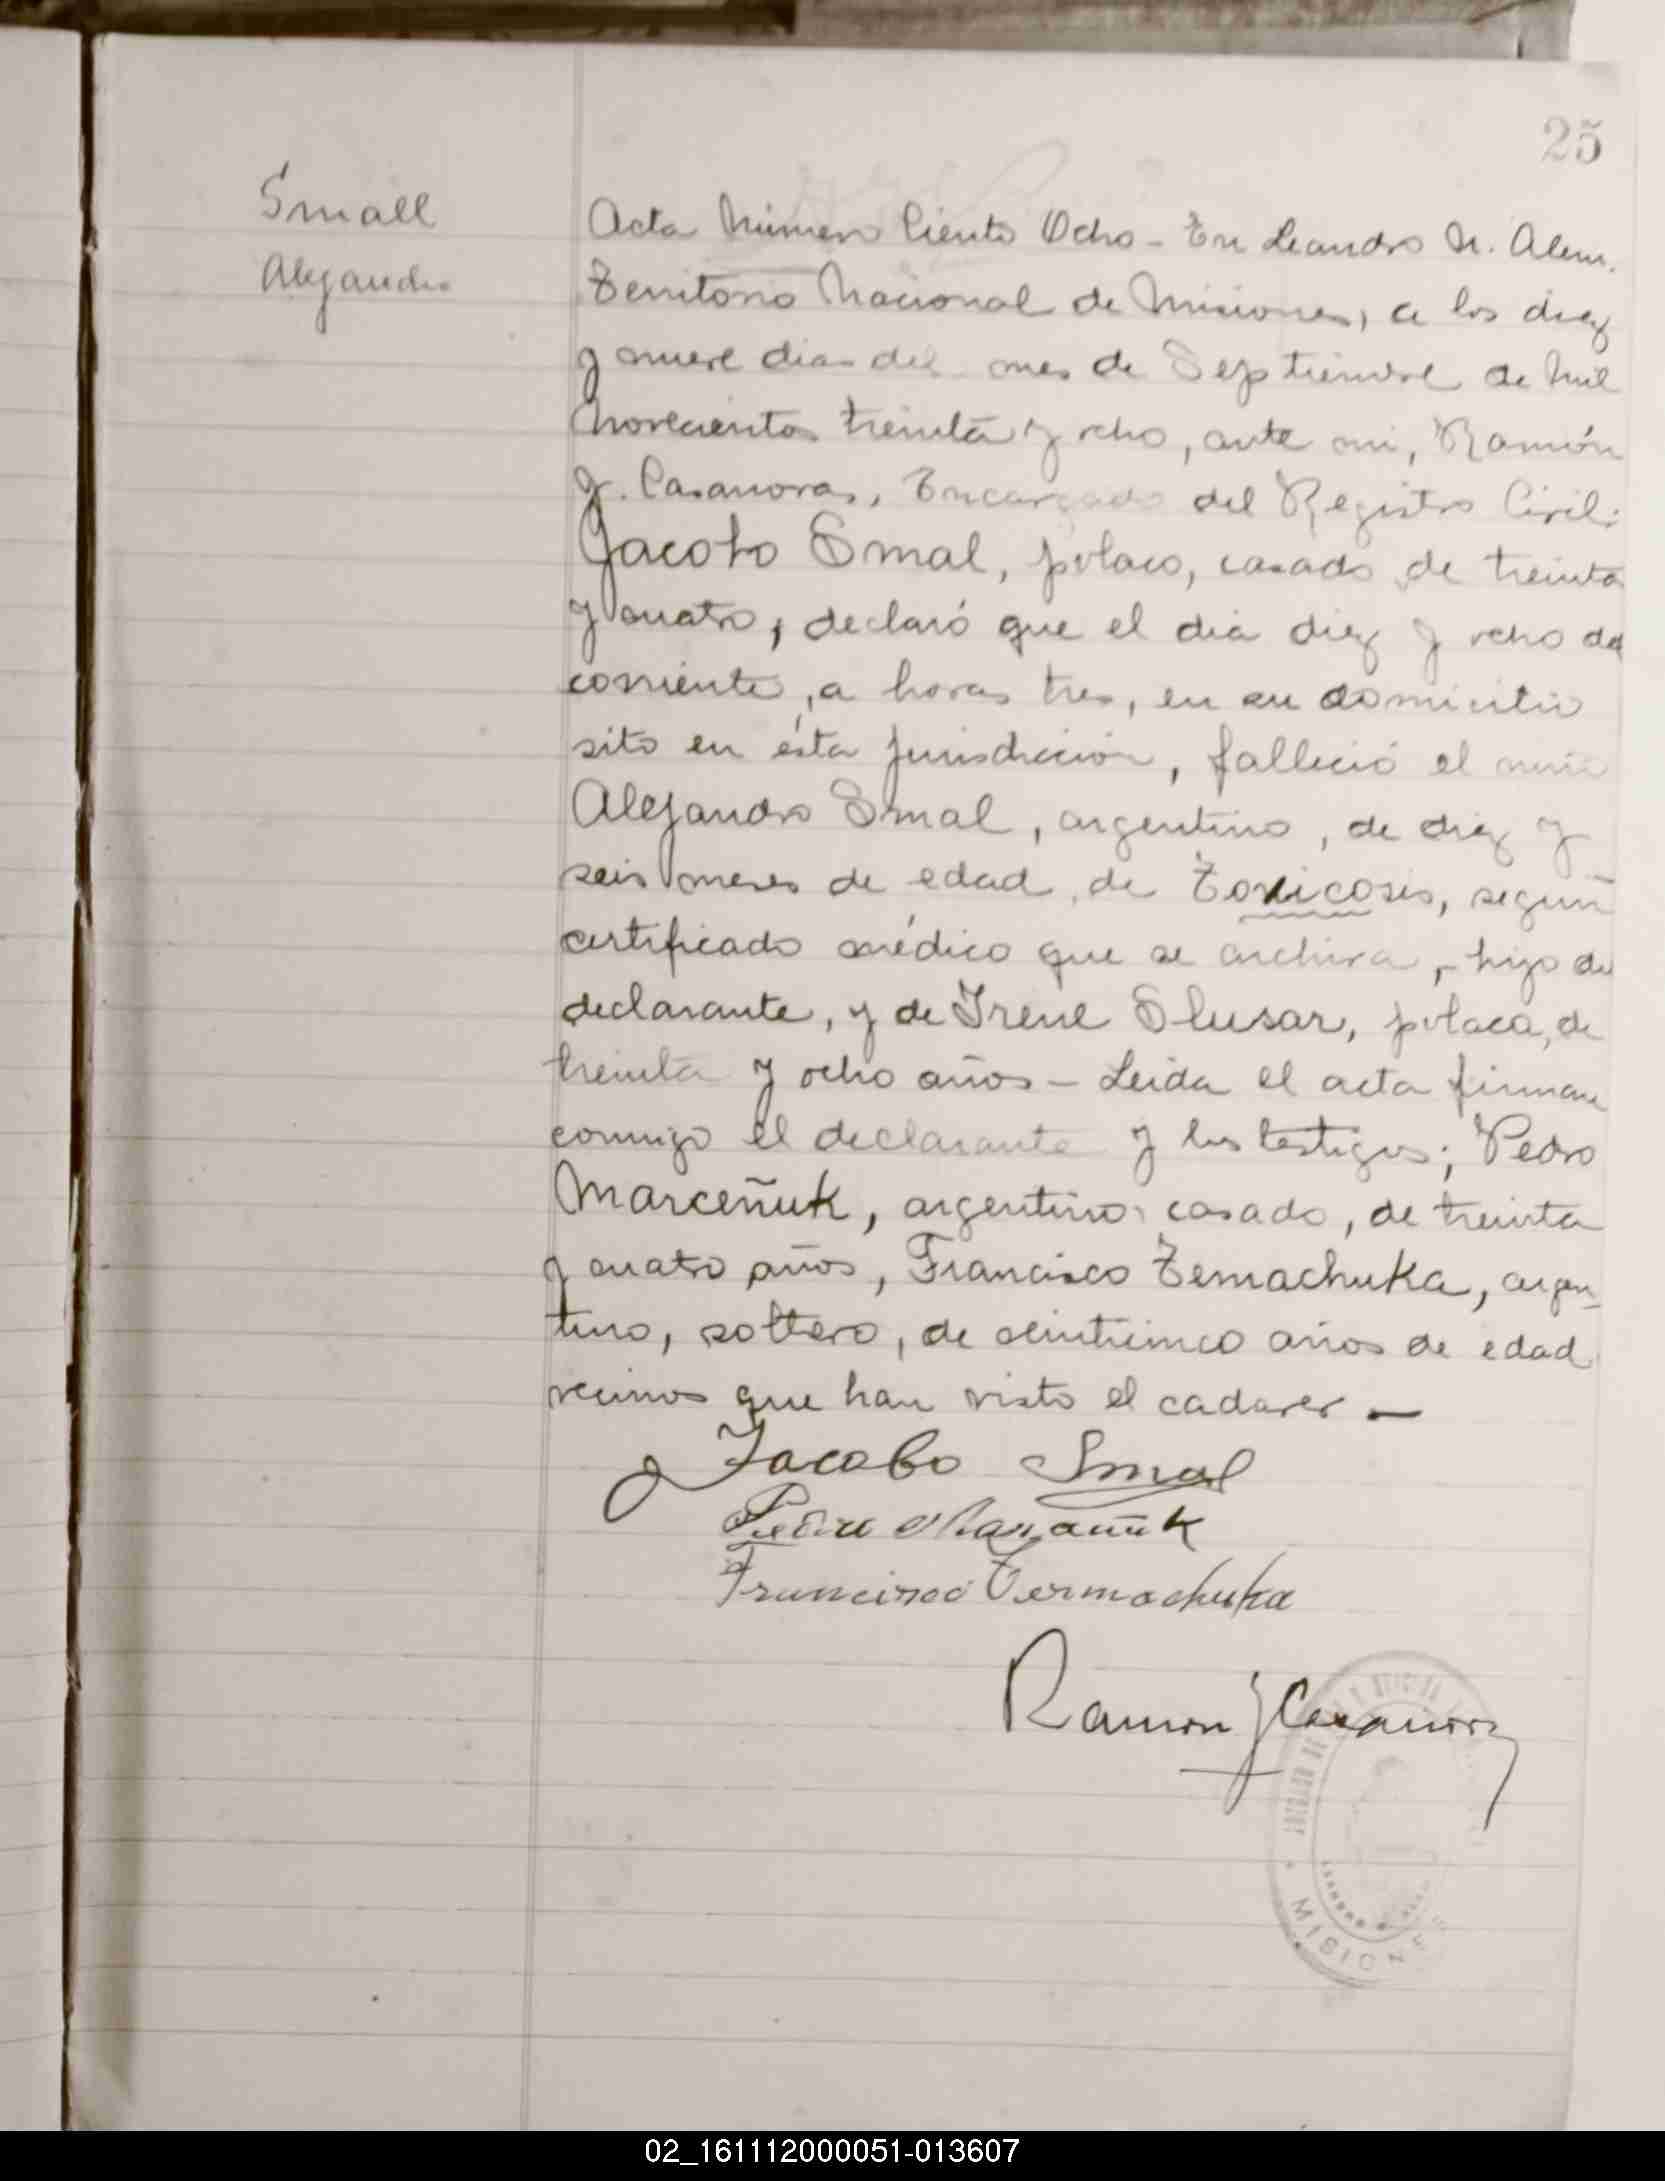 25
Small
Alejandro
Acta Número Ciento Ocho - En Leandro N. Alem.
Territorio Nacional de Misiones, a los diez
y nueve dias del mes de Septiembre de mil
novecientos treinta y ocho, ante mi, Ramón
J. Casanovas, Encargado del Registro Civil:
Jacobo Smal, polaco, casado de treinta
y cuatro, declaró que el dia diez y ocho del
corriente, a horas tres, en su domicilio
sito en ésta jurisdicción, falleció el niño
Alejandro Smal, argentino, de diez y
seis meses de edad, de Toxicosis, según
certificado médico que se archiva, - hijo del
declarante, y de Irene Slusar, polaca, de
treinta y ocho años - Leida el acta firman
conmigo el declarante y los testigos; Pedro
Marceñuk, argentino casado, de treinta
y cuatro años, Francisco Zemachuka, argen-
tino, soltero, de veinticinco años de edad
vecinos que han visto el cadaver -
Jacobo Smal
Pedro
Francisco Zermachuka
Ramon J Casanovas
MISIONES
02_161112000051-013607